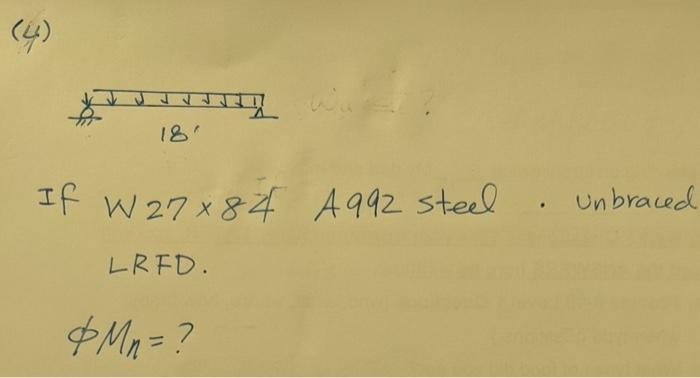 (4)
18'
If W27×84 A992 steel . unbraced
LRFD.
ϕMn=?